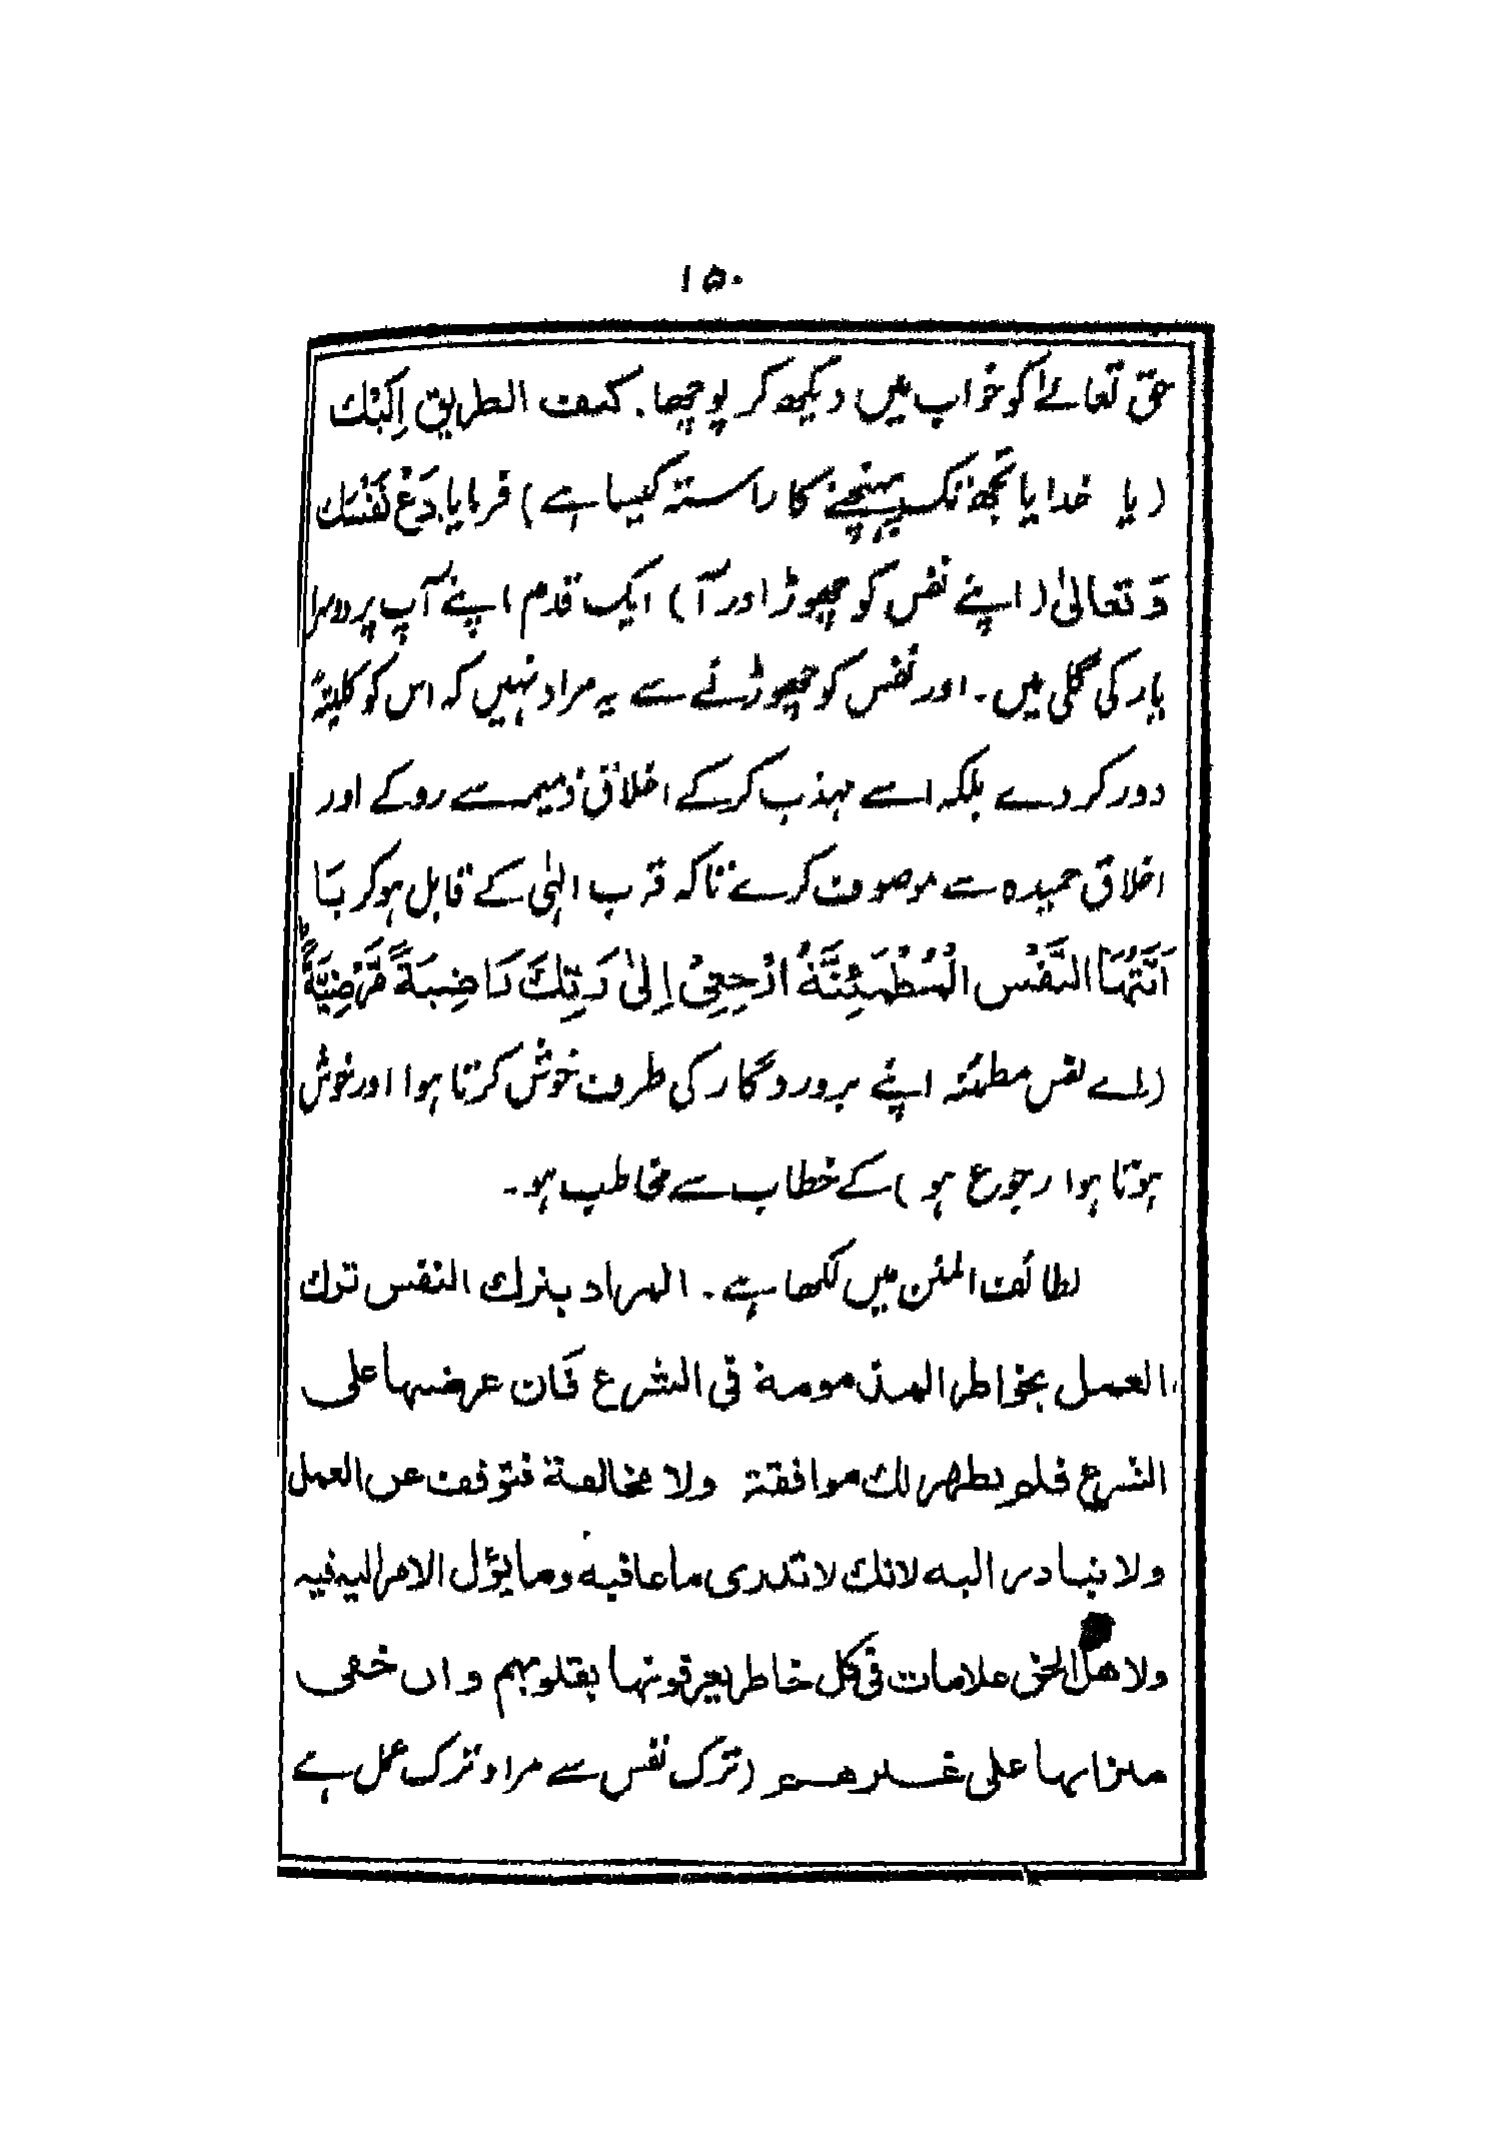 ۱۵۰
حق تعالےٰ کو خواب میں دیکھ کر پوچھا. کیف الطریق اِلَیْك
(یا خدایا تجھ تک پہنچنے کا راستہ کیسا ہے) فرمایا. دَعْ نَفْسَك
وَ تعالیٰ (اپنے نفس کو چھوڑ اور آ) ایک قدم اپنے آپ پر دوسرا
یار کی گلی میں۔ اور نفس کو چھوڑنے سے یہ مراد نہیں کہ اس کو کلیتہً
دور کر دے بلکہ اسے مہذب کر کے اخلاق ذمیمہ سے روکے اور
اخلاق حمیدہ سے موصوف کرے تاکہ قرب الہٰی کے قابل ہو کر یَا
اَیَّتُہَا النَّفْس الْمُطْمَئِنَّةُ ارْجِعِیْ اِلیٰ رَبِّكَ رَاضِیَةً مَّرْضِیَّةً ؕ
(اے نفس مطمئنہ اپنے پروردگار کی طرف خوش کرتا ہوا اور خوش
ہوتا ہوا رجوع ہو) کے خطاب سے مخاطب ہو۔
لطائف المنن میں لکھا ہے۔ المراد بترك النفس ترك
العمل بخواطر المذمومة فی الشرع فَان عرضہا علی
الشرع فلم یظہر لك موافقتہ ولا مخالفة فتوقف عن العمل
ولا تبادر الیہ لانك لا تدری ما عاقبہ وما یؤل الامر الیہ فیہ
ولا ھل الحق علامات فی کل خاطر یعرفونہا بقلوبہم وان خفی
میزانہا علی غیرھم (ترک نفس سے مراد ترک عمل ہے